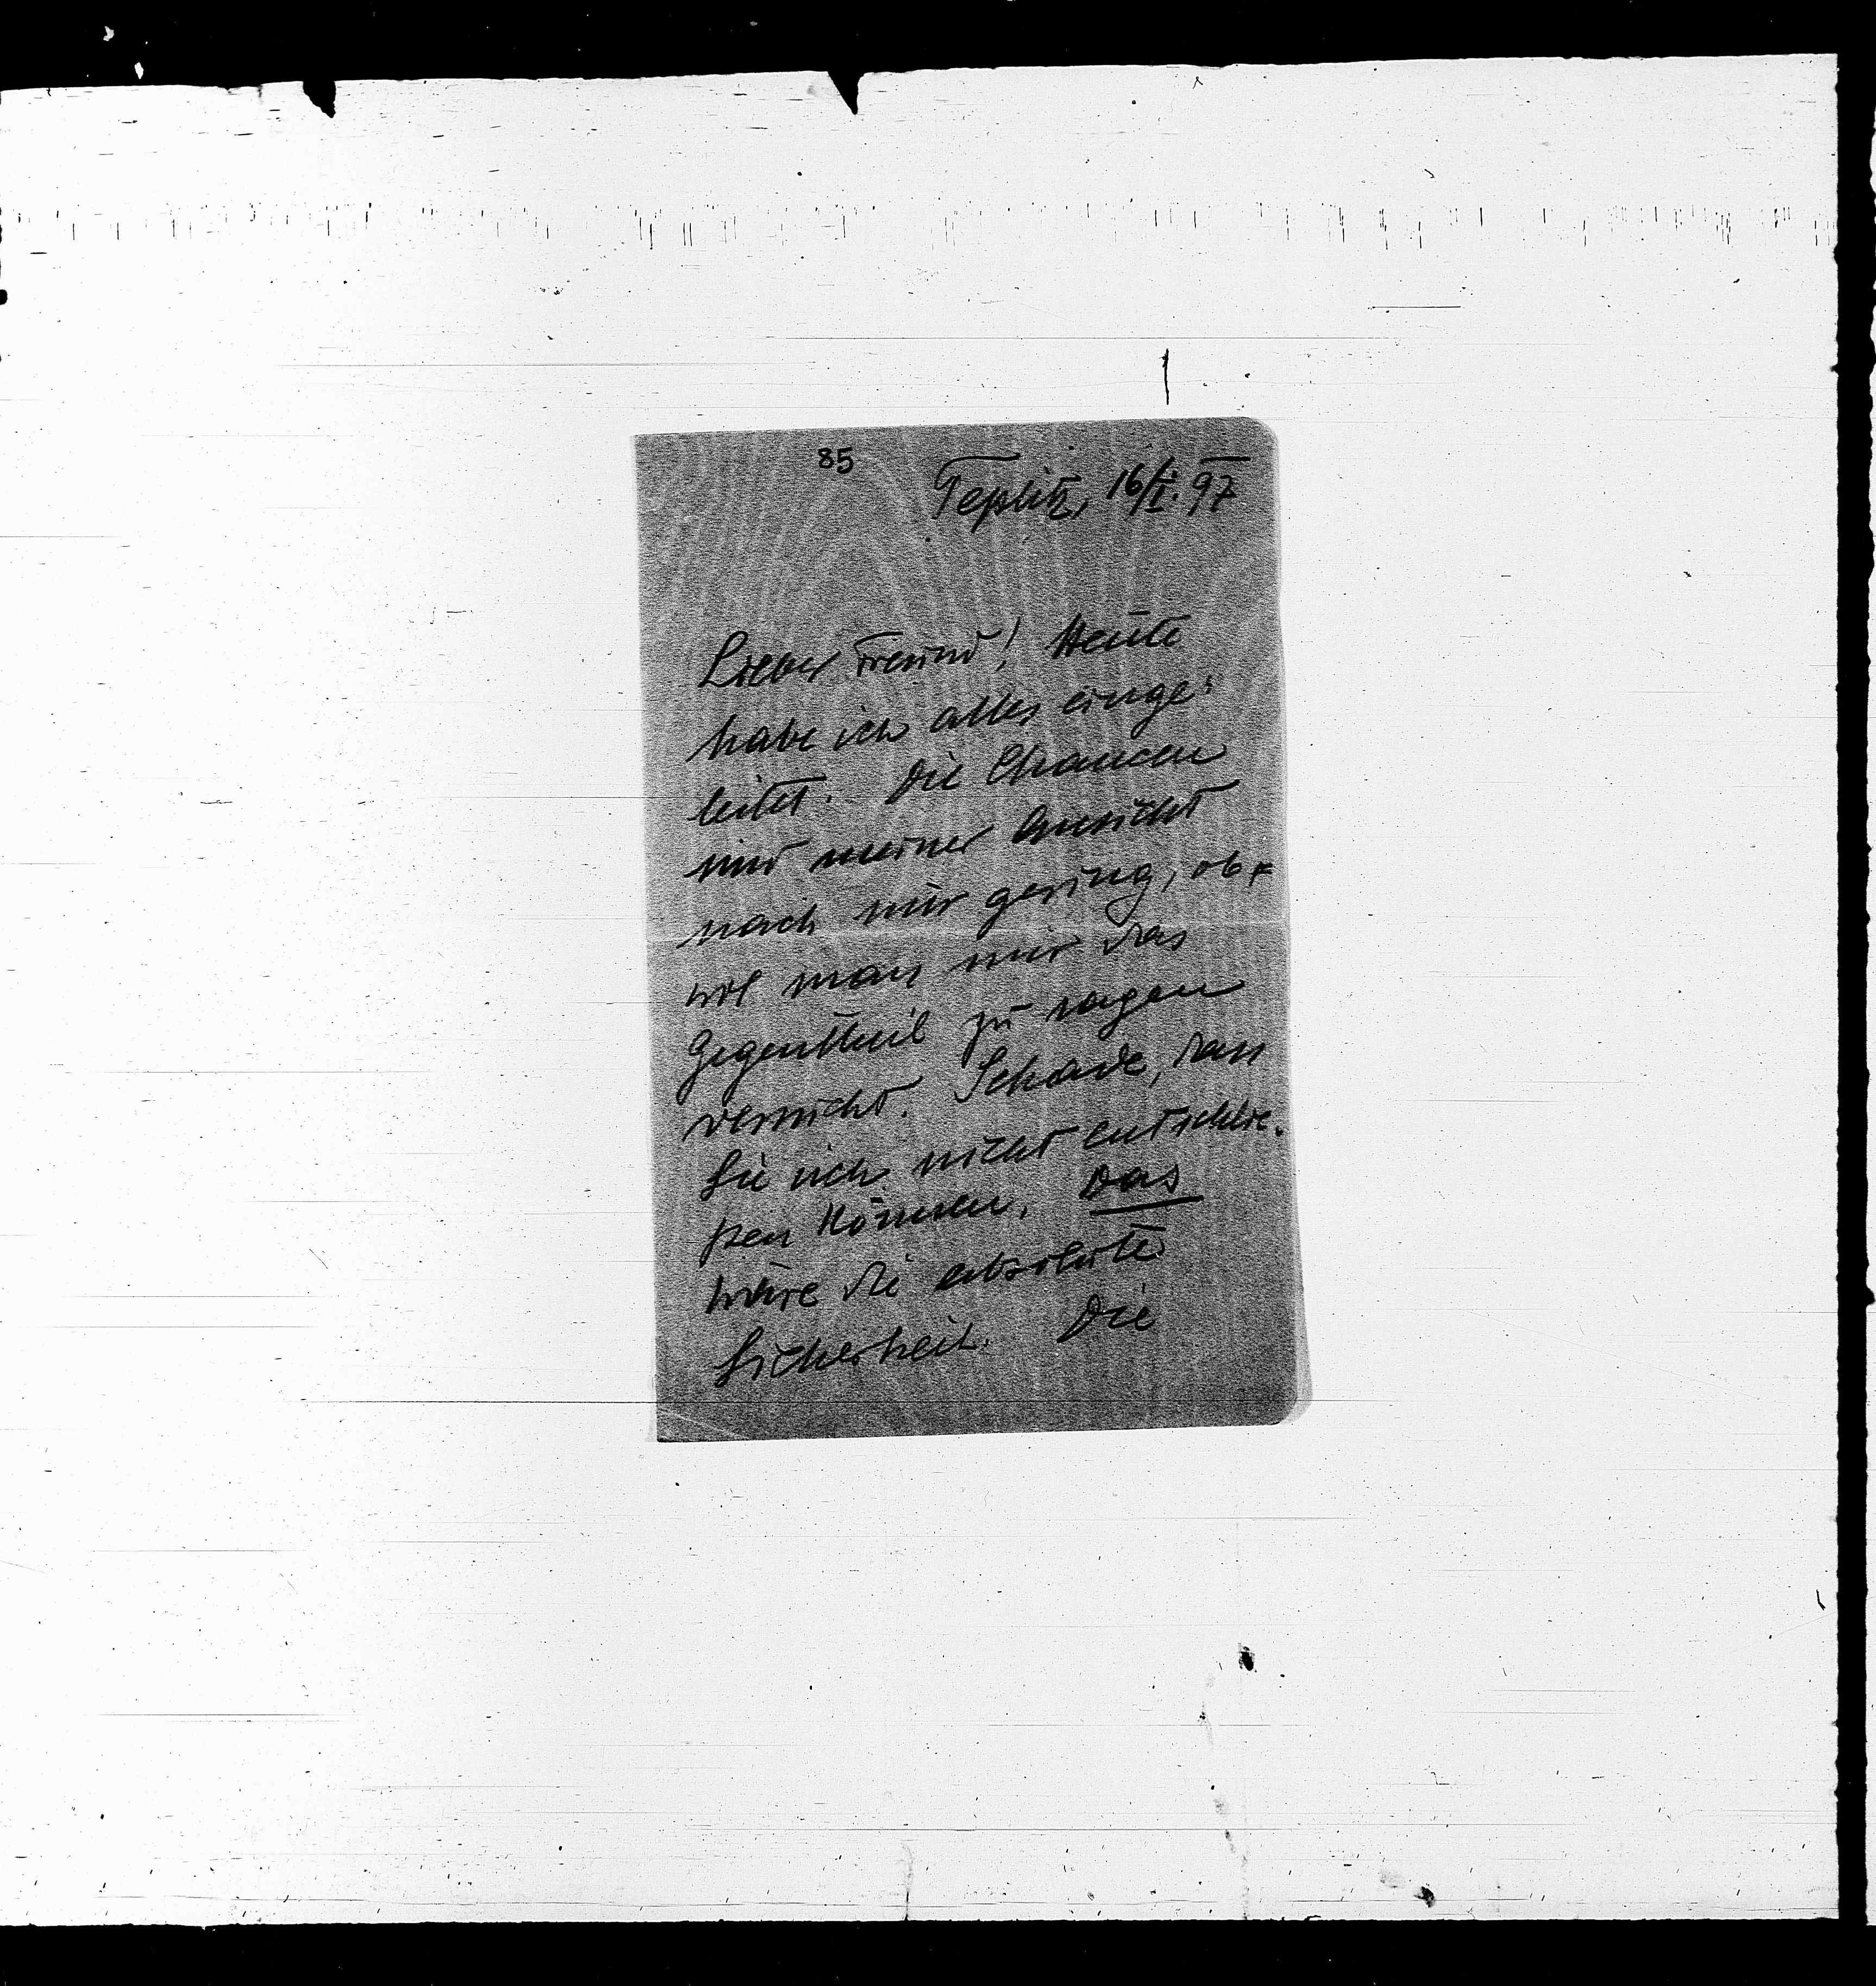 85
Teplitz, 16/I. 97
Lieber Freund! Heute
habe ich alles einge-
leitet. Die Chancen
sind meiner Ansicht
nach nur gering, ob-
wol man mir das
Gegentheil zu sagen
versucht. Schade, dass
Sie sich nicht entschlie-
ßen können. Das
wäre die absolute
Sicherheit. Die